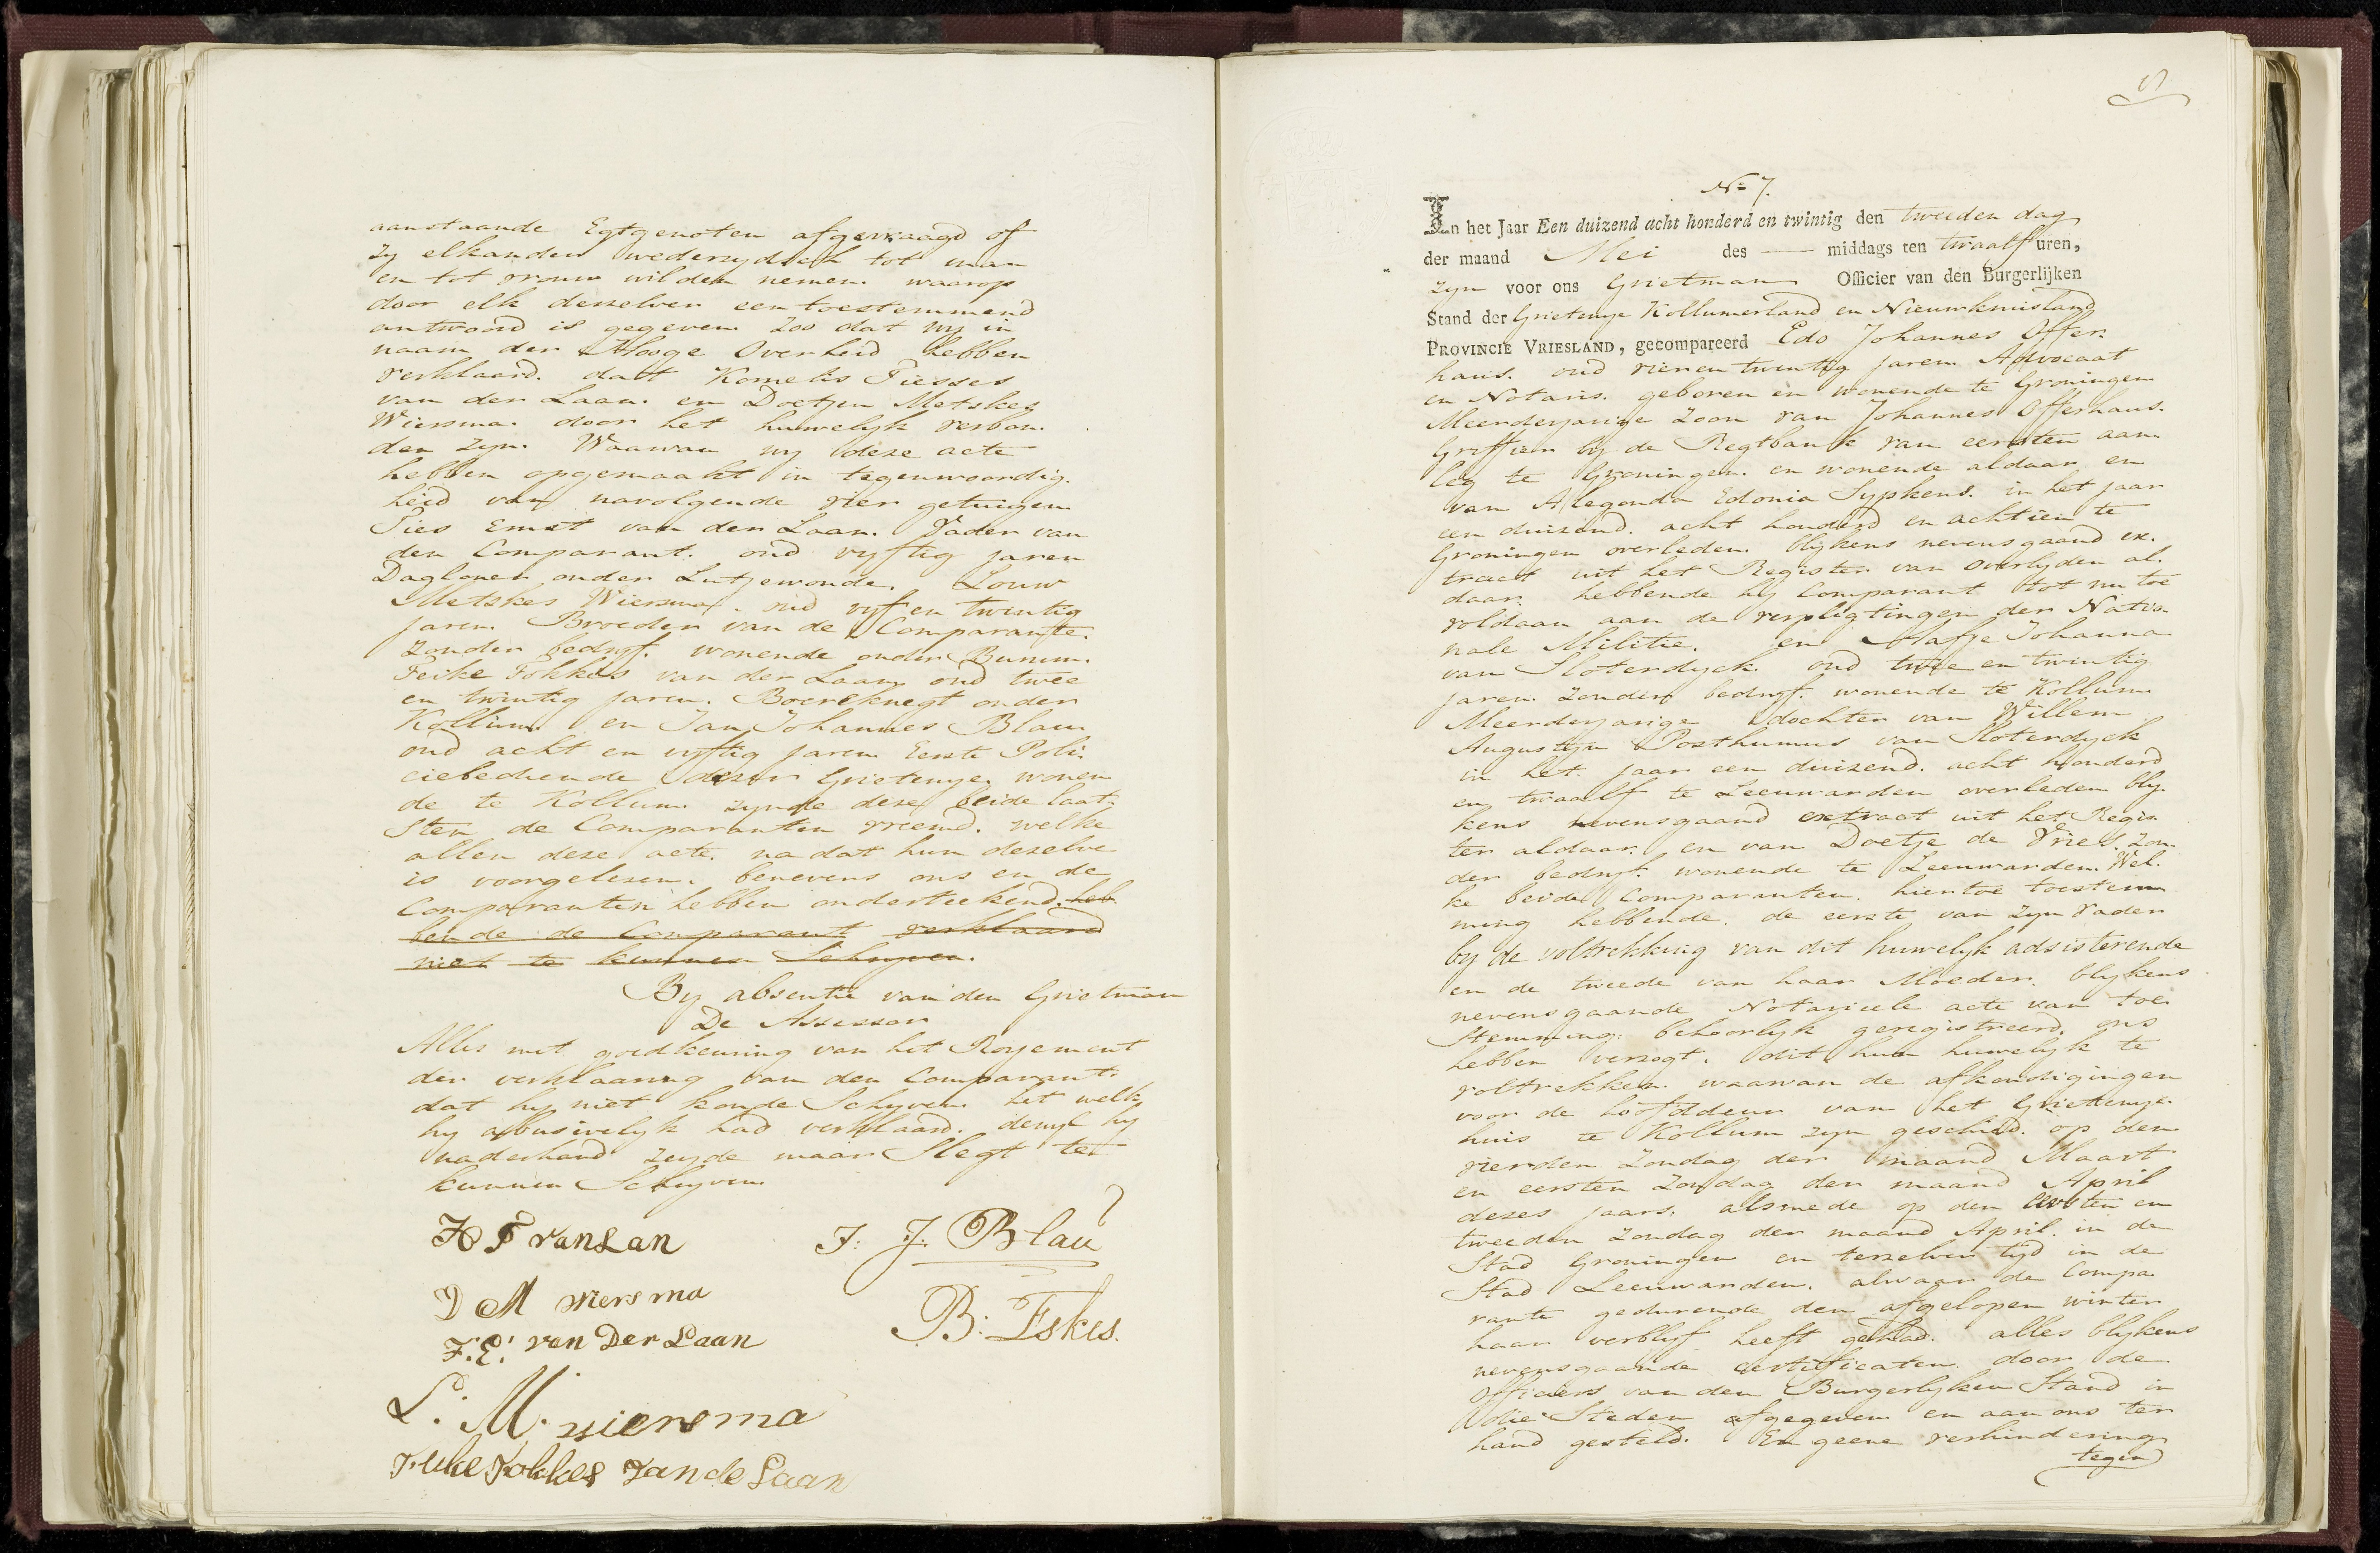 aanstaande Egtgenoten afgevraagd of
zy elkander wederzydsch tot man
en tot vrouw wilden nemen. waarop
door elk derzelver een toestemmend
antwoord is gegeven Zoo dat wy in
naam der Hooge Overheid hebben
verklaard. dat Kornelis Piesses
van der Laan. en Doetjen Metskes
Wiersma. door het huwelyk verbon-
den zyn. Waarvan wy deze acte
hebben opgemaakt in tegenwoordig-
heid van navolgende vier getuigen
Pies Ernst van der Laan. Vader van
den Comparant. oud vyftig jaren
Dagloner onder Lutjewoude. Louw
Metskes Wiersma. oud vyf en twintig
jaren. Broeder van de Comparante.
Zonder bedryf. wonende onder Burum.
Feike Fokkes van der Laan oud twee
en twintig jaren. Boereknegt onder
Kollum. en Jan Johannes Blau
oud acht en vyftig jaren Eerste Poli-
ciebediende dezer Grietenye. wonen
de te Kollum. zynde deze beide laat-
sten de Comparanten vreemd. welke
allen deze acte. na dat hun dezelve
is voorgelezen. benevens ons en de
Comparanten hebben onderteekend. heb
bende de Comparant verklaard
niet te kunnen Schryven.
By absentie van den Grietman
De Assessor
Alles met goedkeuring van het Royement
der verklaaring van den Comparant.
dat hy niet konde Schryven. het welk
hy abusivelyk had verklaard. dewyl hy
naderhand zeyde maar Slegt te
kunnen Schryven
J. J. Blau
D M wiersma
B: Eskes.
van Der Laan
L. M. wiersma
Feike Fokkes van de Laan
No 7.
In het Jaar Een duizend acht honderd en twintig den tweeden dag
der maand Mei des — middags ten twaalf uren,
zyn voor ons Grietman Officier van den Burgerlijken
Stand der Grietenye Kollumerland en Nieuwkruisland
PROVINCIE VRIESLAND, gecompareerd Edo Johannes Offer-
haus. oud vier en twintig jaren Advocaat
en Notaris. geboren en wonende te Groningen
Meerderjarige Zoon van Johannes Offerhaus.
Griffier by de Regtbank van eersten aan
leg te Groningen. en wonende aldaar en
van Alegonda Edonia Sypkens. in het jaar
een duizend. acht honderd en achtien te
Groningen overleden. blykens nevensgaand ex-
tract uit het Register van overlyden al-
daar. hebbende hy Comparant tot nu toe
voldaan aan de verpligtingen der Natio-
nale Militie. en Johanna
van Sloterdyck oud twee en twintig
jaren Zonder bedryf. wonende te Kollum
Meerderjarige dochter van Willem
Augustyn Posthumus van Sloterdyck
in het jaar een duizend. acht honderd
en twaalf te Leeuwarden overleden bly-
kens nevensgaand extract uit het Regis-
ter aldaar. en van Doetje de Vries. Zon-
der bedryf. wonende te Leeuwarden. Wel-
ke beide Comparanten. hiertoe toestem
ming hebbende. de eerste van Zyn Vader
by de voltrekking van dit huwelyk adsisterende
en de tweede van haar Moeder. blykens
nevensgaande Notarieele acte van toe-
stemming. behoorlyk geregistreerd. ons
hebben verzogt. dit hun huwelyk te
voltrekken. waarvan de afkondigingen
voor de hoofddeur van het Grietenye-
huis te Kollum zyn geschied. op den
vierden Zondag der maand Maart
en eersten Zondag der maand April
dezes jaars. alsmede op den eersten en
tweeden Zondag der maand April. in de
Stad Groningen en terzelver tyd in de
Stad Leeuwarden. alwaar de Compa-
rante gedurende den afgelopen winter
haar verblyf heeft gehad. alles blykens
nevensgaande certificaten. door de
Officiers van den Burgerlyken Stand in
die Steden afgegeven en aan ons ter
hand gesteld. En geene verhindering
tegen